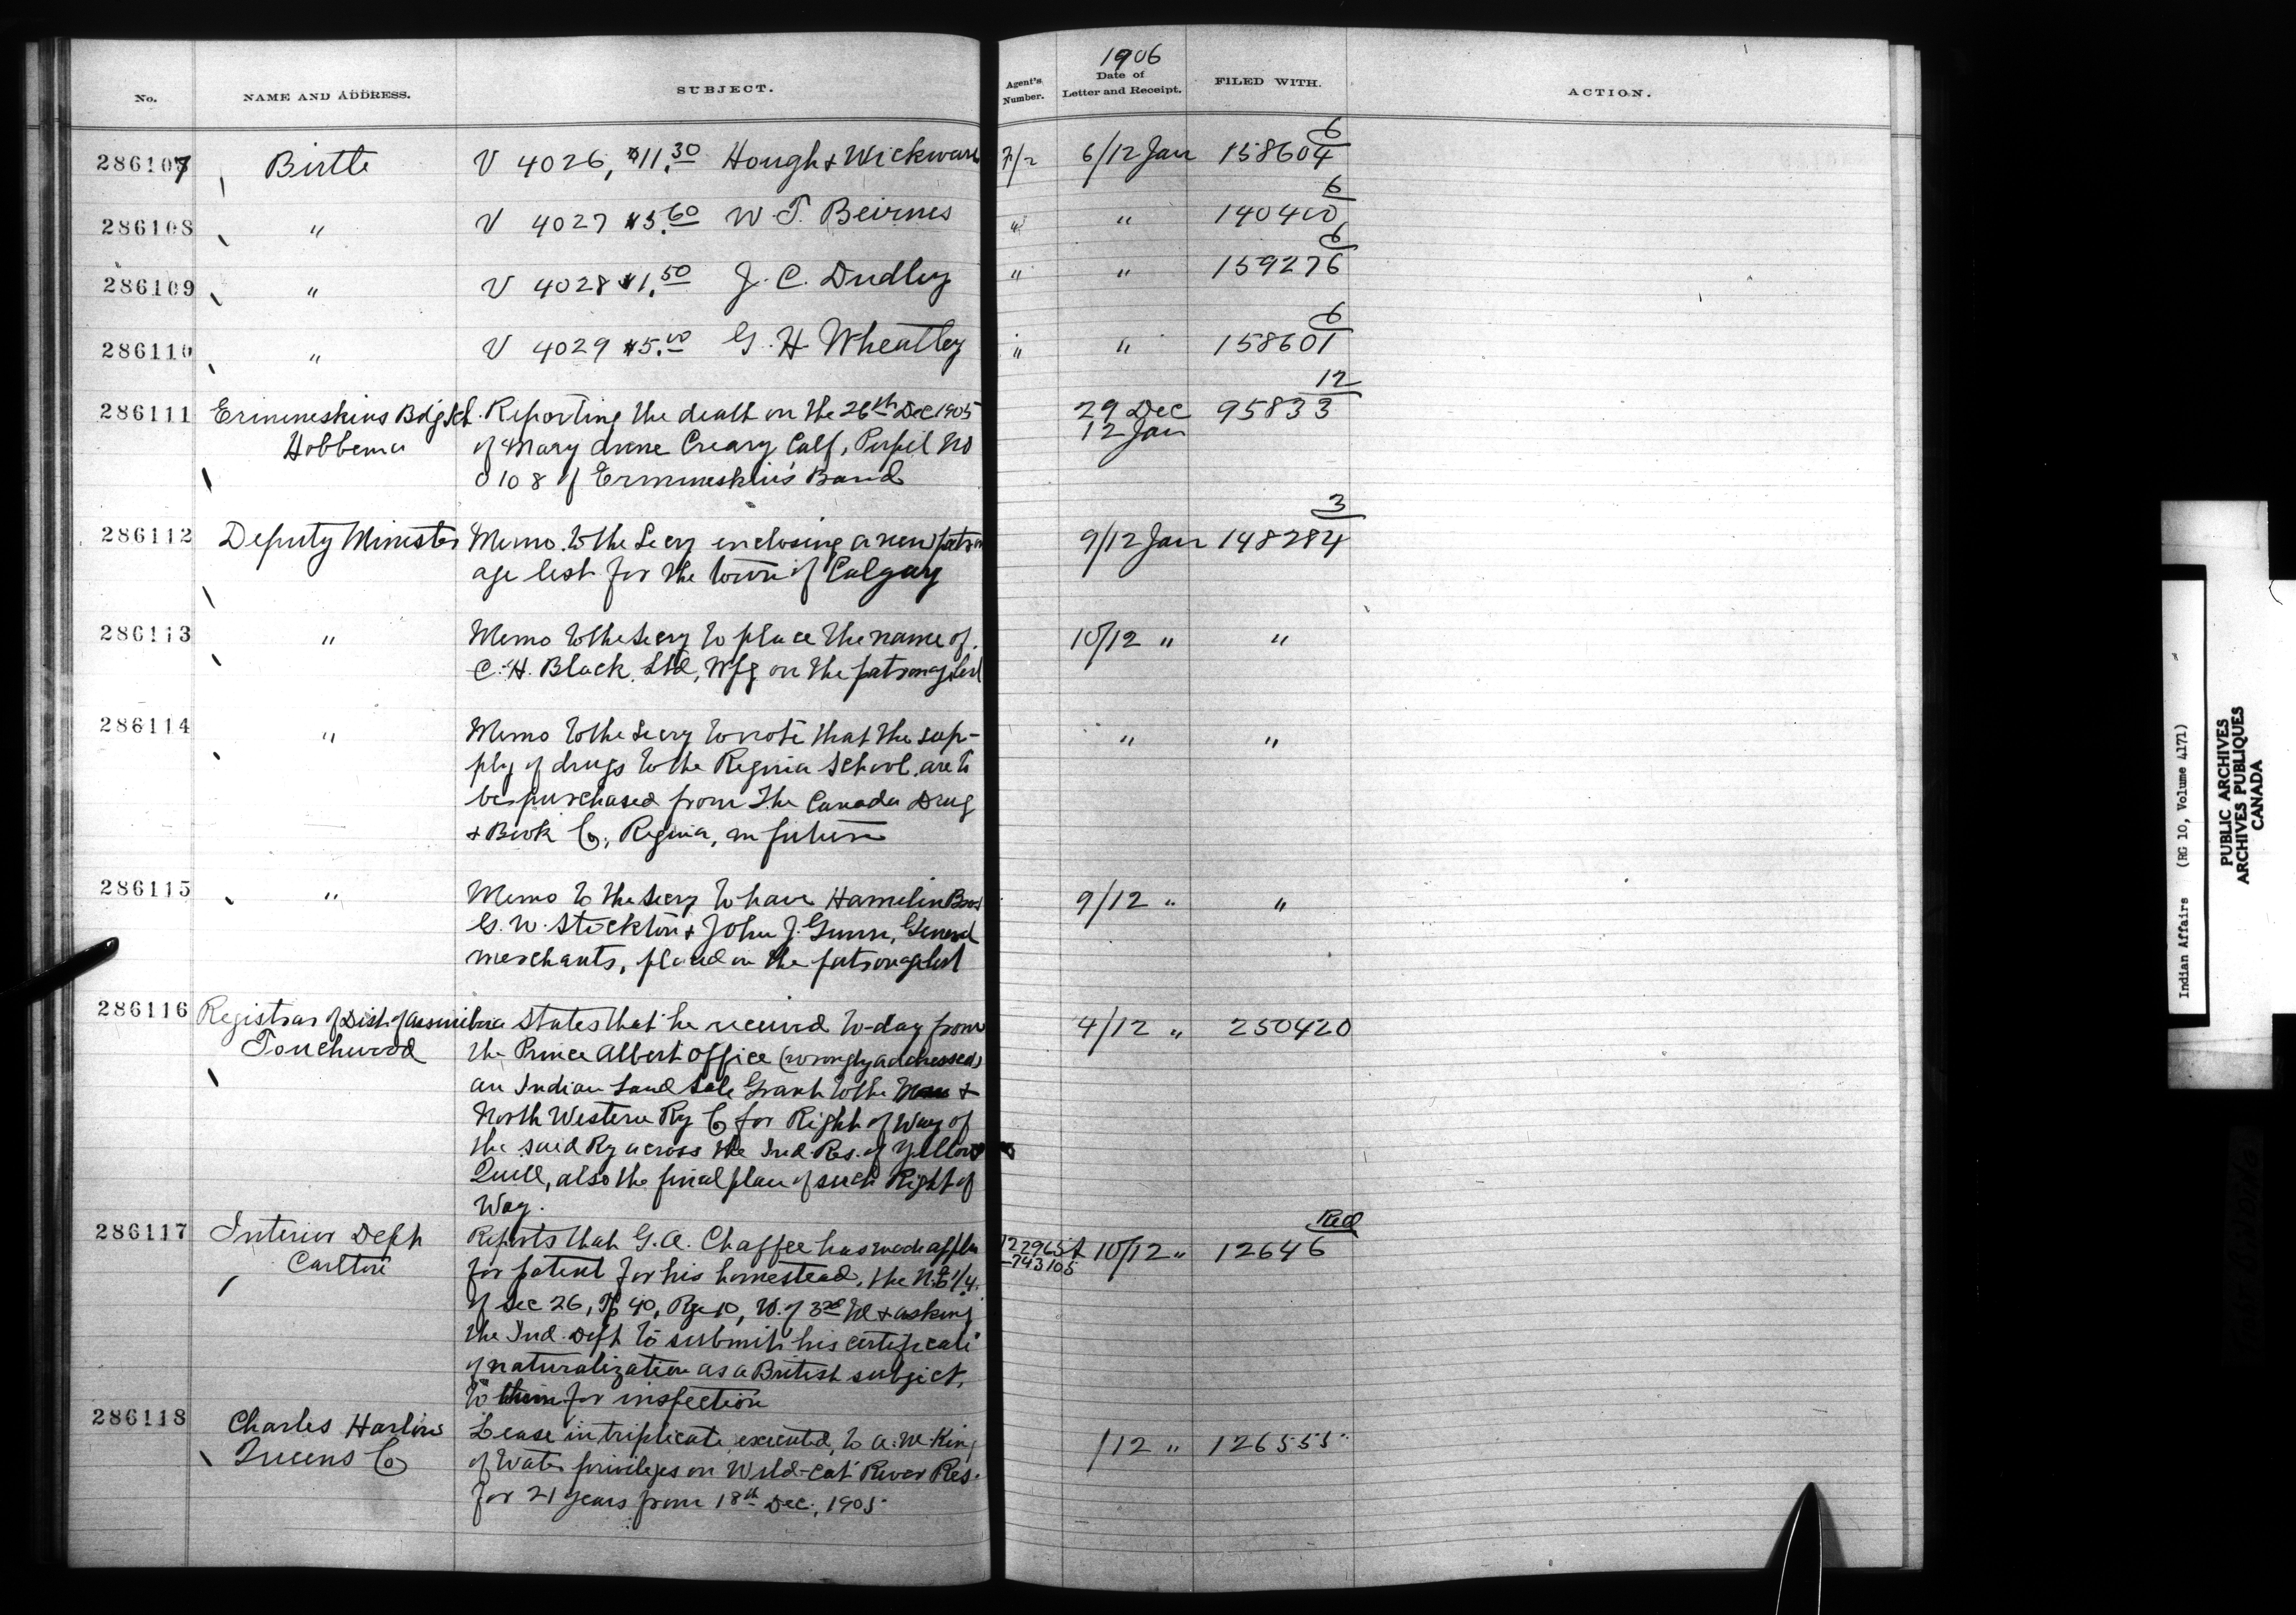 1906
No. NAME AND ADDRESS. SUBJECT. Agent's Number. Date of Letter and Receipt. FILED WITH. ACTION.
286107 Birtle V 4026, $11.30 Hough & Wickware 7/2 6/12 Jan 158604 6
286108 " V 4027 $3.60 W. J. Beirnes " " 140400 6
286109 " V 4028 $1.50 J. C. Dudley " " 159276 6
286110 " V 4029 $5.00 G. H. Wheatley " " 158601 6
286111 Ermineskins Bdg Sch. Reporting the death on the 26th Dec 1905 29 Dec 95833 12
Hobbema of Mary Calf, Pupil No 12 Jan
0108 of Ermineskin's Band
286112 Deputy Minister Memo. to the Secy enclosing a new patron 9/12 Jan 148284 3
age list for the town of Calgary
286113 " Memo to the Secy to place the name of 10/12 " "
C. H. Black Ltd, Wpg on the patronage list
286114 " Memo to the Secy to note that the sup- " "
ply of drugs to the Regina School are to
be purchased from The Canada Drug
& Book Co, Regina, in future
286115 " Memo to the Secy to have Hamelin Bros 9/12 " "
G. W. Stockton & John J. Gunn, General
merchants, placed on the patronage list
286116 Registrar of Dist. of Assiniboia States that he received to-day from 4/12 " 250420
Touchwood the Prince Albert Office (wrongly addressed)
an Indian Land Sale Grant to the Man &
North Western Ry Co for Right of Way of
the said Ry across the Ind. Res. of Yellow
Quill, also the final plan of such Right of
Way.
286117 Interior Dept Reports that G. A. Chaffee has made appln 10/12 " 12646 Red
Carlton for patent for his homestead, the N.E 1/4 743105
of Sec 26, Tp 40, Rge 10, W. of 3rd M & asking
the Ind. Dept to submit his certificate
of naturalization as a British subject,
to them for inspection
286118 Charles Harlow Lease in triplicate, executed, to A. W. King /12 " 126555
Queens Co of Water privileges on Wild-Cat River Res.
for 21 years from 18th Dec., 1905
Indian Affairs (RG 10, Volume 4171)
PUBLIC ARCHIVES
ARCHIVES PUBLIQUES
CANADA